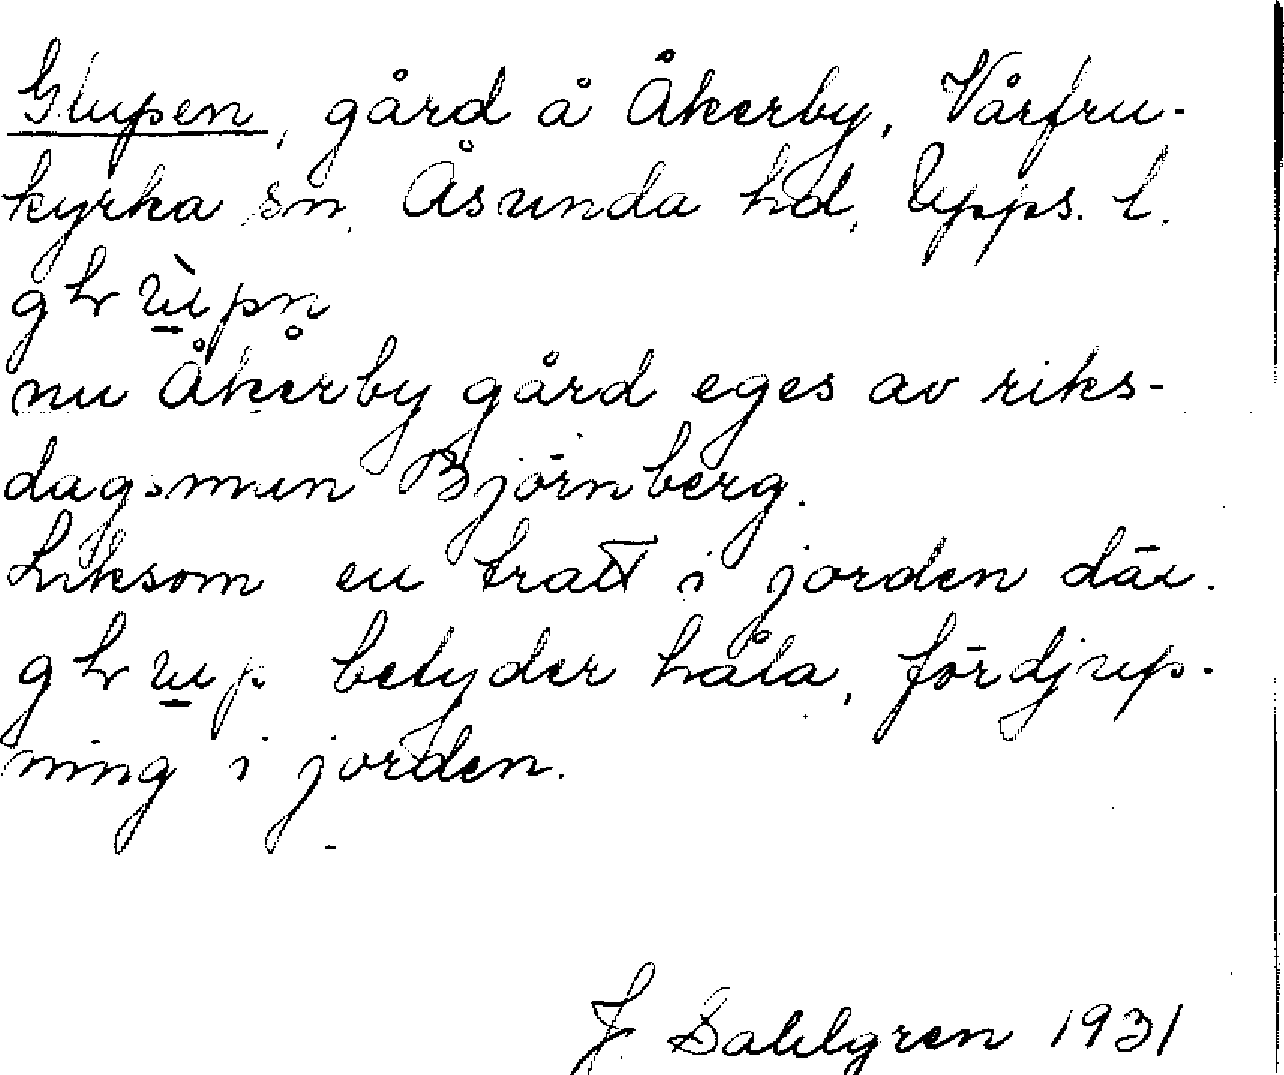 Glupen, gård å Åkerby, Vårfru-
kyrka sn, Åsunda hd, Upps. l.
nu Åkerby gård eges av riks-
dagsman Björnberg.
Liksom en tratt i jorden där.
betyder håla, fördjup-
ning i jorden.
J Dahlgren 1931